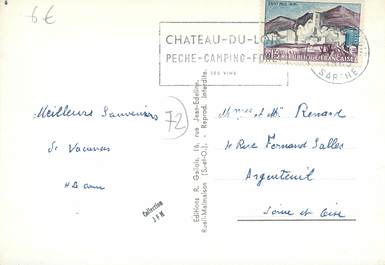 6€
CHATEAU-DU-LOIR
PECHE-CAMPING-FO
SES VINS
SARTHE
0,15 REPUBLIQUE FRANCAISE
Meilleurs Souvenirs
de Vacances
72
Editions R. Gallois, 16, rue Jean-Edeline,
Rueil-Malmaison (S.-et-O.) - Reprod. interdite.
Collection
J P M
Mme et Mr Renard
4 Rue Fernand Salles
Argenteuil
Seine et Oise